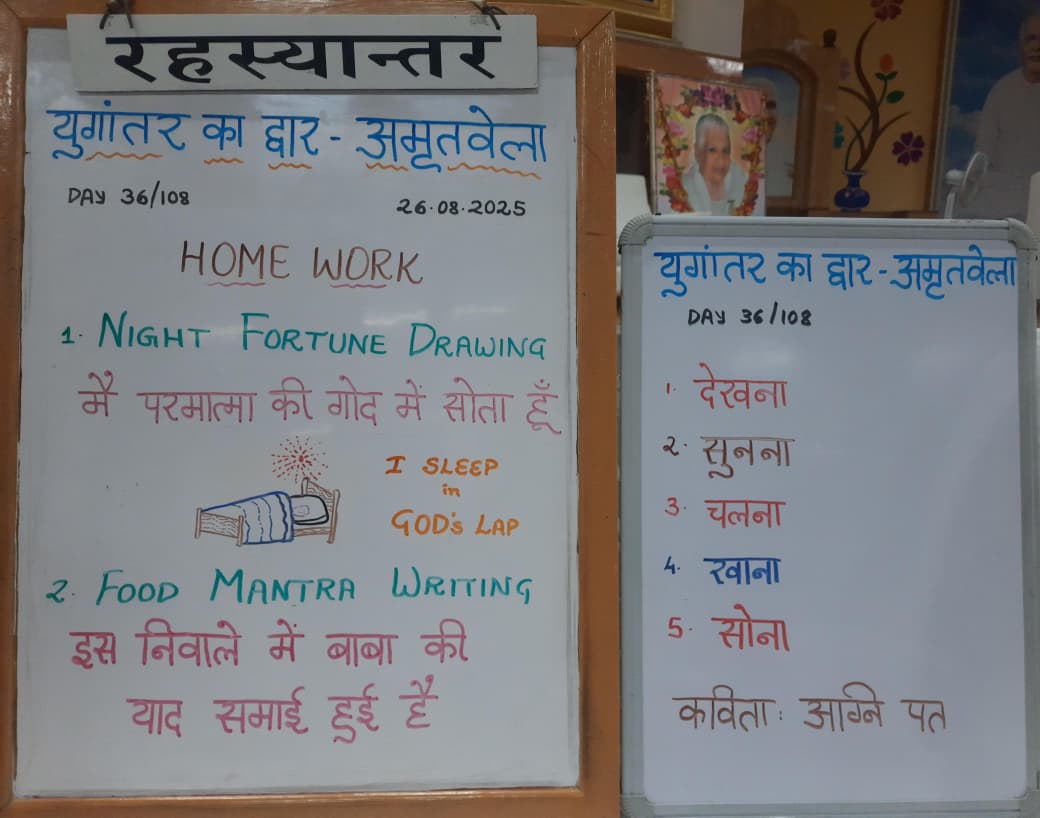 रहस्यान्तर
युगांतर का द्वार - अमृतवेला
DAY 36/108
26.08.2025
HOME WORK
1. NIGHT FORTUNE DRAWING
मै परमात्मा की गोद में सोता हूँ
I SLEEP
in
GOD's LAP
2. FOOD MANTRA WRITING
इस निवाले में बाबा की
याद समाई हुई है
युगांतर का द्वार - अमृतवेला
DAY 36/108
1. देखना
2. सुनना
3. चलना
4. खाना
5. सोना
कविता : अग्नि पत